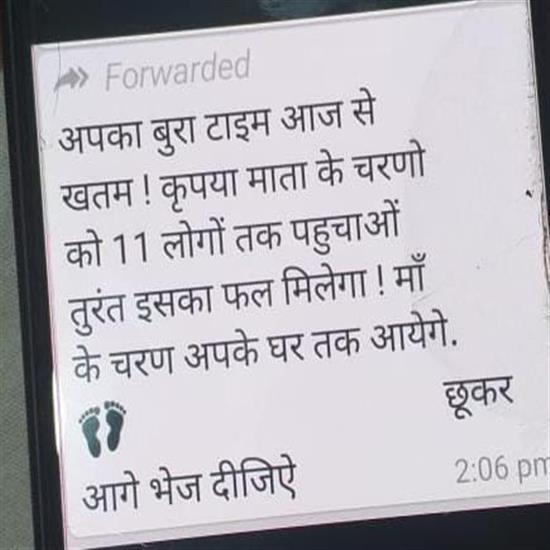 Forwarded
अपका बुरा टाइम आज से
खतम ! कृपया माता के चरणो
को 11 लोगों तक पहुचाओं
तुरंत इसका फल मिलेगा ! माँ
के चरण अपके घर तक आयेगे.
👣 छूकर
आगे भेज दीजिऐ
2:06 pm